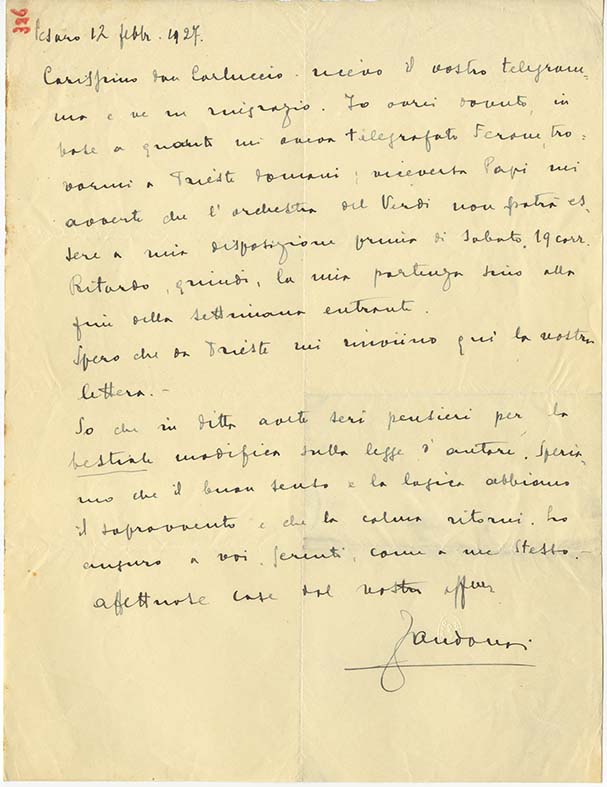 326
Pesaro 12 febbr. 1927.
Carissimo don Carluccio. ricevo il vostro telegram=
ma e ve ne ringrazio. Io avrei dovuto, in
base a quanto mi aveva telegrafato Ferone, tro=
varmi a Trieste domani; viceversa Papi mi
avverte che l'orchestra del Verdi non potrà es=
sere a mia disposizione prima di Sabato, 19 corr.
Ritardo, quindi, la mia partenza sino alla
fine della settimana entrante.
Spero che da Trieste mi rinviino qui la vostra
lettera. -
So che in ditta avete seri pensieri per la
bestiale modifica sulla legge d'autore. Speria=
mo che il buon senso e la logica abbiano
il sopravvento e che la calma ritorni. Lo
auguro a voi, Serenti, come a me stesso. -
Affettuose cose dal vostro affmo
Zandonai